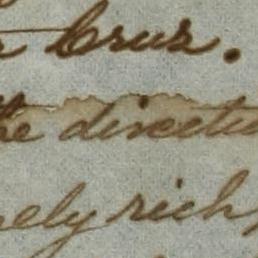 Cruz.
the directi
ely rich,